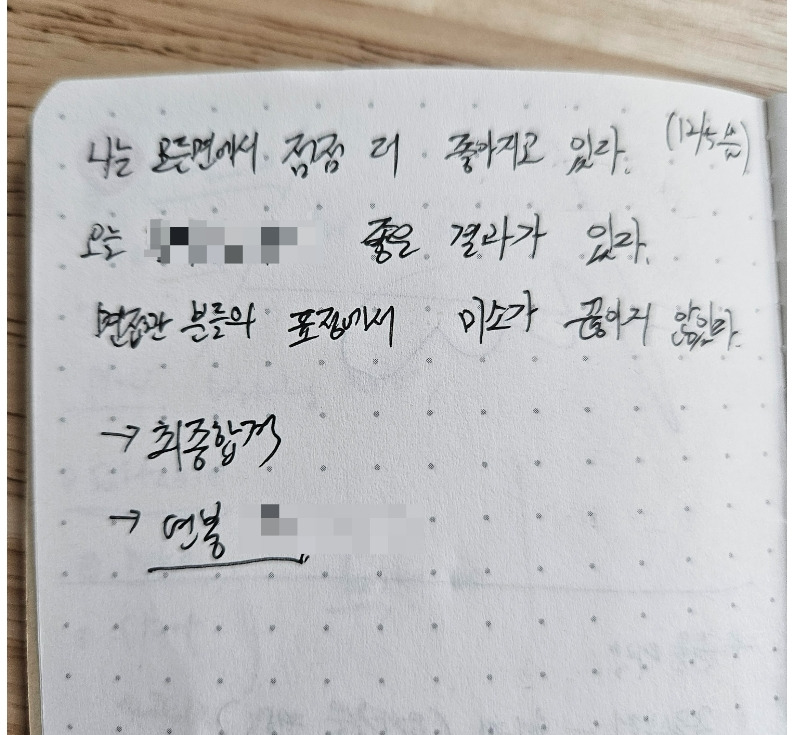 나는 모든면에서 점점 더 좋아지고 있다. (12/5 수)
오늘 좋은 결과가 있다.
면접관 분들의 표정에서 미소가 끊이지 않았다.
→ 최종합격
→ 연봉